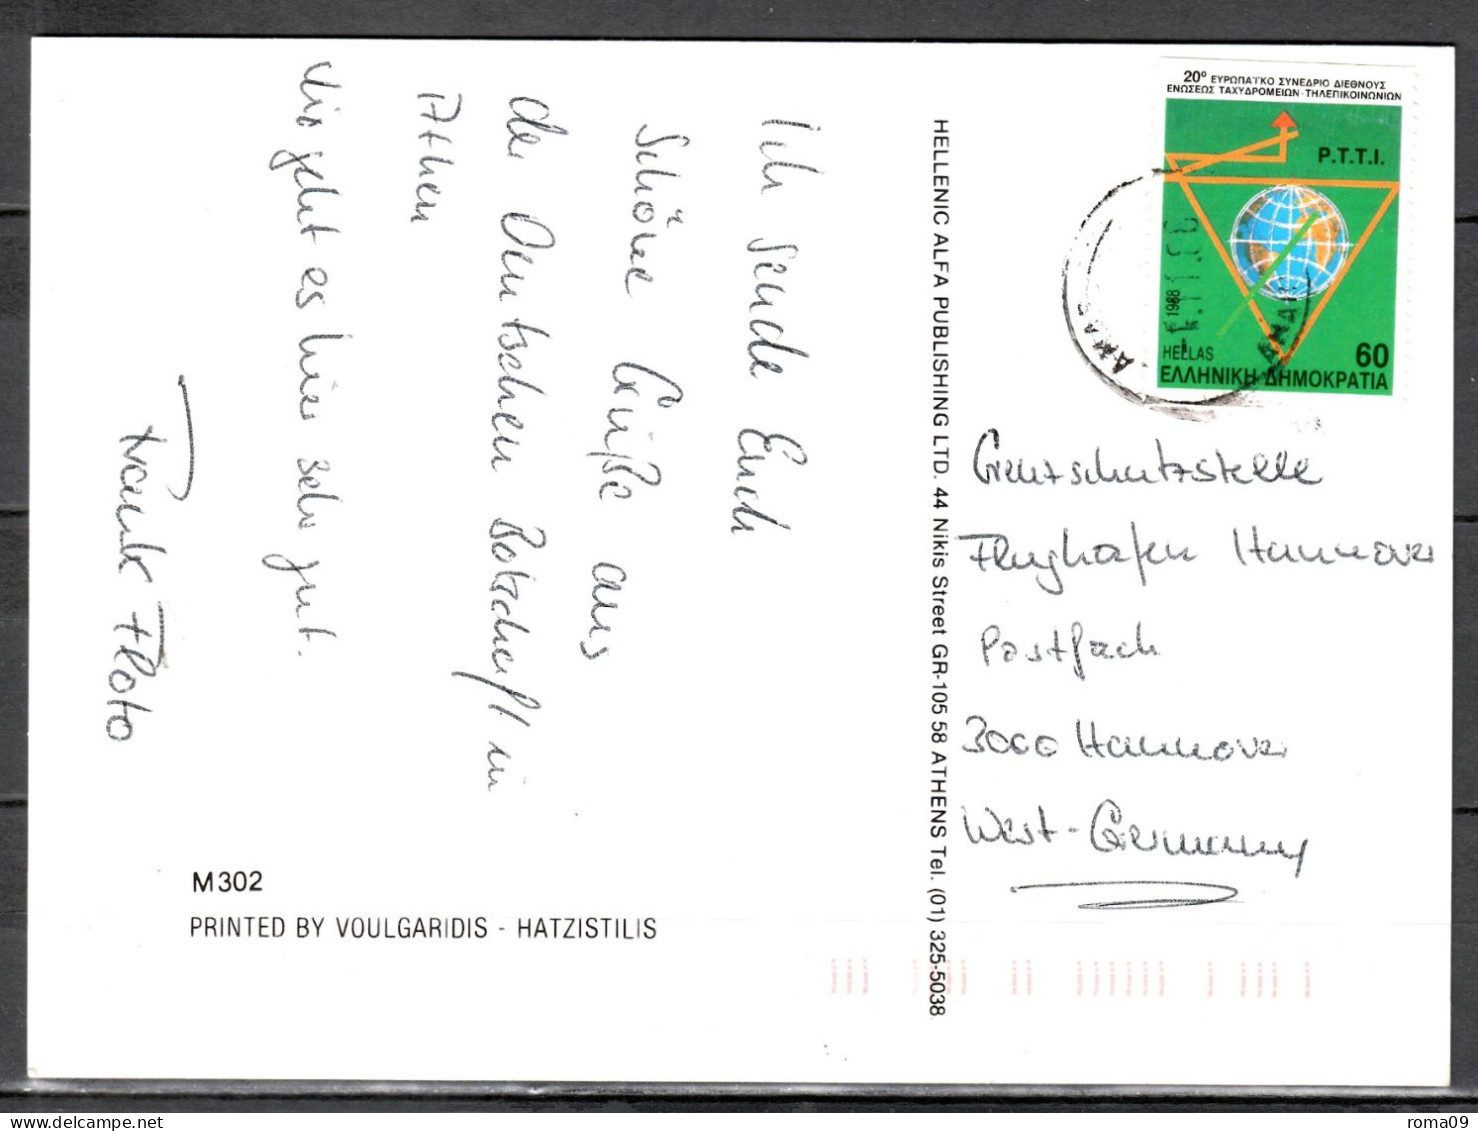 Ich sende Euch
Schöne Grüße aus
der Deutschen Botschaft in
Athen
Mir geht es hier sehr gut.
Frank Floto
M302
PRINTED BY VOULGARIDIS - HATZISTILIS
HELLENIC ALFA PUBLISHING LTD. 44 Nikis Street GR-105 58 ATHENS Tel. (01) 325-5038
20º ΕΥΡΩΠΑΪΚΟ ΣΥΝΕΔΡΙΟ ΔΙΕΘΝΟΥΣ
ΕΝΩΣΕΩΣ ΤΑΧΥΔΡΟΜΕΙΩΝ - ΤΗΛΕΠΙΚΟΙΝΩΝΙΩΝ
P.T.T.I.
1988
HELLAS
60
ΕΛΛΗΝΙΚΗ ΔΗΜΟΚΡΑΤΙΑ
Grenzschutzstelle
Flughafen Hannover
Postfach
3000 Hannover
West-Germany
roma09